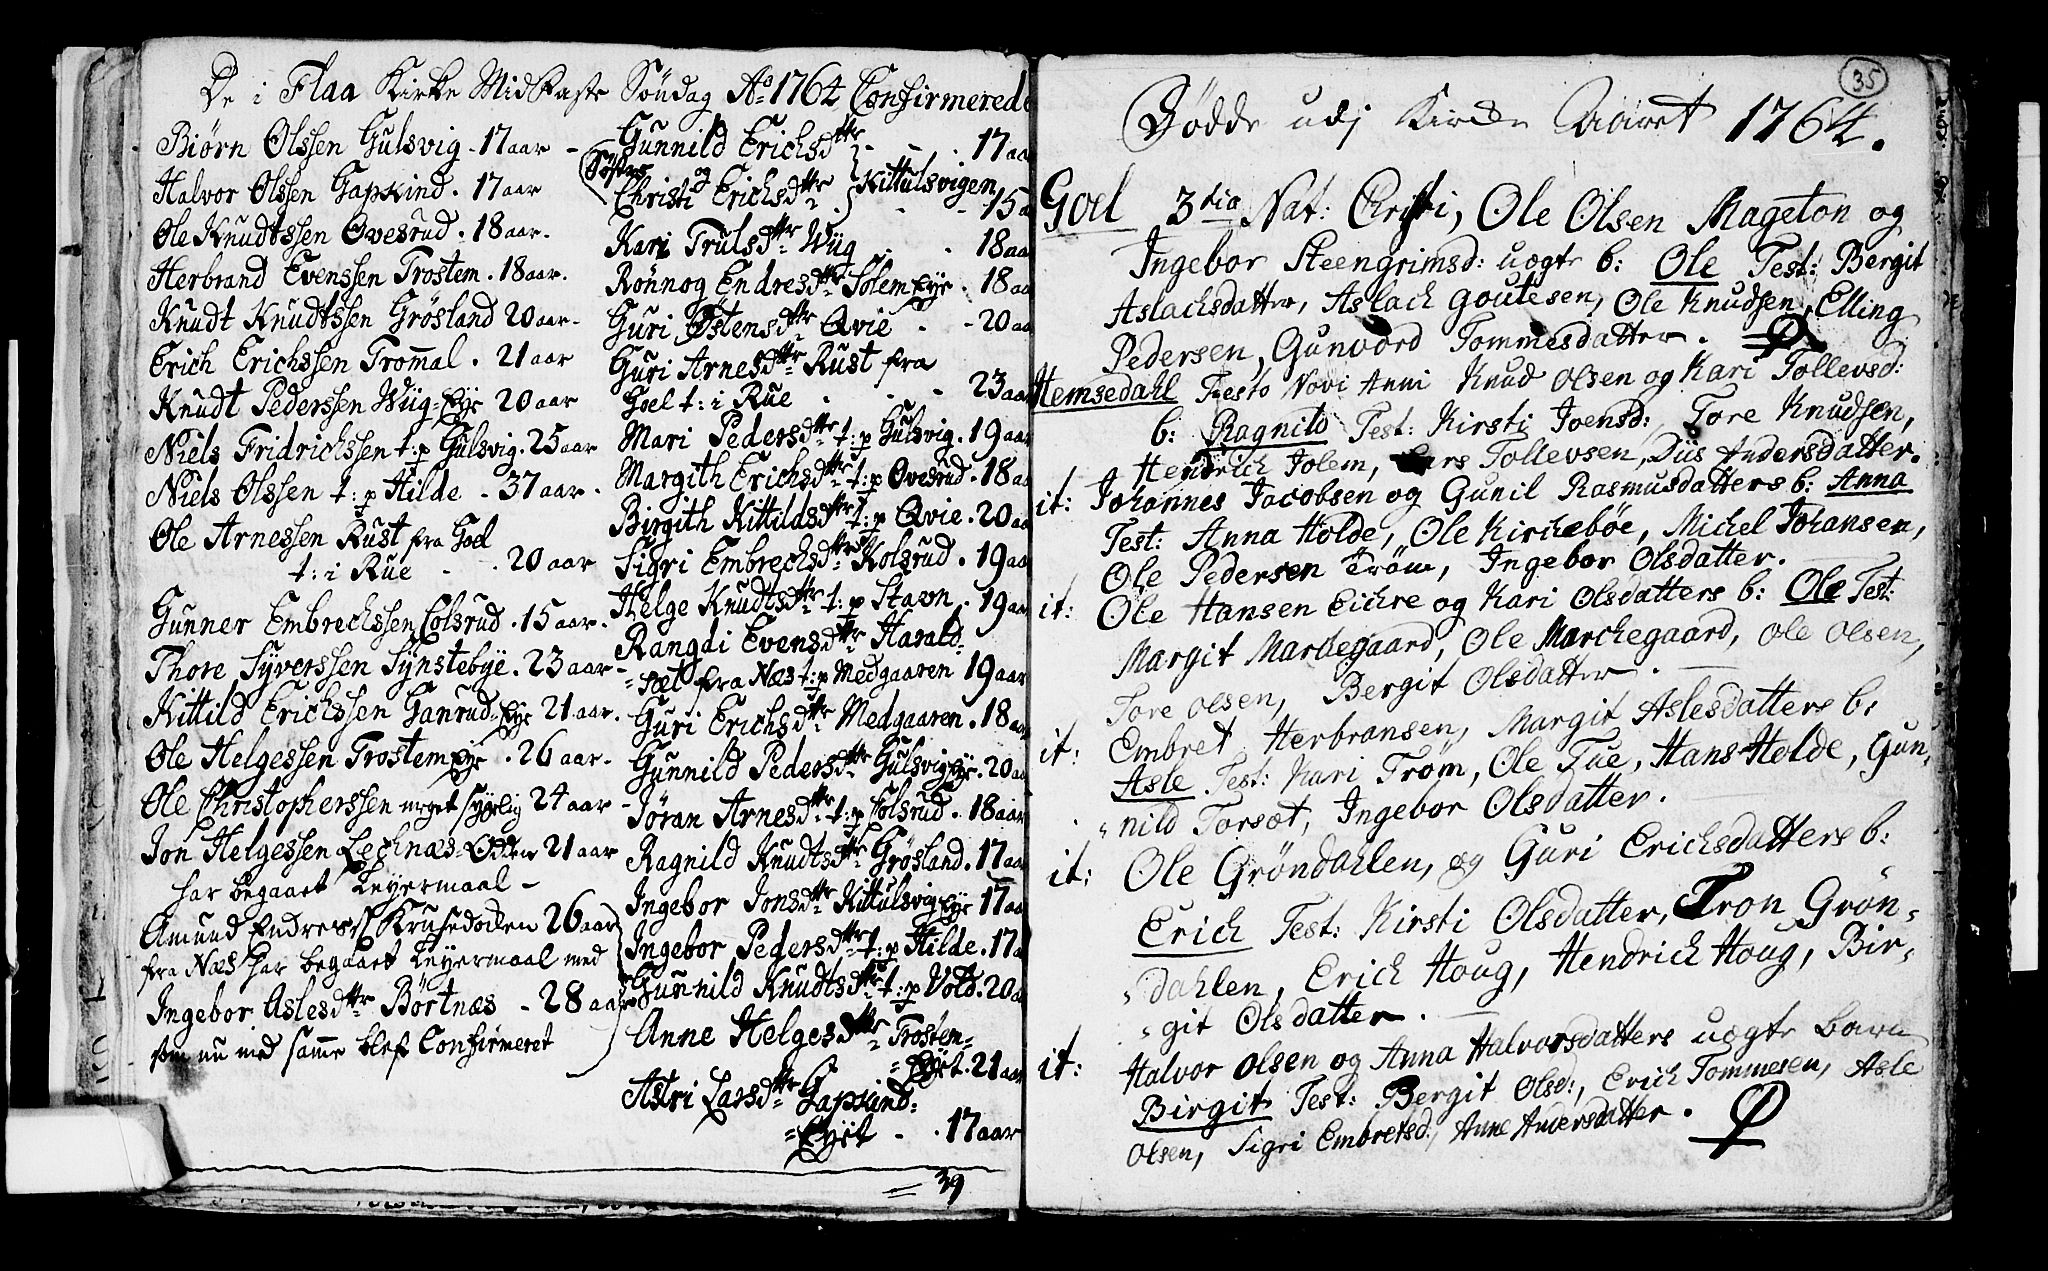 De i Flaa Kirke MidFaste Söndag Aº 1764 Confirmerede
Biørn Olssen Gulsvig - 17 aar -
Halvor Olssen Gapkind . 17 aar
Ole Knudtssen Ovesrud . 18 aar.
Herbrand Evenssen Trostem . 18 aar.
Knudt Knudtssen Grösland 20 aar.
Erich Erichssen Trommal . 21 aar
Knudt Pederssen Wiig-Eye 20 aar
Niels Fridrichssen t: p Gulsvig . 25 aar
Niels Olssen t: p Hilde - 37 aar.
Ole Arnessen Rust fra Goel
t: i Rue - . 20 aar
Gunner Embrechssen Colsrud . 15 aar.
Thore Syverssen Synstebye . 23 aar -
Kittild Erichssen Ganrud-Eye 21 aar.
Ole Helgessen Trostem Eye . 26 aar.
Ole Christopherssen meget Sygelig 24 aar -
Jon Helgessen Lechnæs-Odden 21 aar
har begaaet Leyermaal -
Amund Endress: Krusedoken 26 aar
fra Næs har begaaet Leyermaal med
Ingebor Aslesdttr Börtnæs - 28 aar
som nu med samme blef Confirmeret
Gunnild Erichsdttr - - . 17 aa
Søstre og Kittulsvigen
Christi Erichsdttr - - 15 a
Kari Trulsdttr Wiig . . 18 aa
Rönnog Endresdttr Solem Eye . 18 aa
Guri Østensdttr Qvie . - 20 aa
Guri Arnesdttr Rust fra
Goel t: i Rue . . - 23 aa
Mari Pedersdttr t: p Gulsvig . 19 aar
Margith Erichsdttr t: p Ovesrud . 18 aa
Birgith Kittildsdttr t: p Qvie . 20 aa
Sigri Embrechsdttr Kolsrud . 19 aa
Helge Knudtsdttr t: p Stavn . 19 aar
Rangdi Evensdttr Harald-
=set fra Næs t: p Medgaaren 19 aar
Guri Erichsdttr Medgaaren . 18 aa
Gunnild Pedersdttr Gulsvig Eye . 20 aa
Jöran Arnesdttr t: p Colsrud . 18 aar
Ragnild Knudtsdttr Grösland . 17 aa
Ingebor Jonsdttr Kittulsvig Eye 17 aa
Ingebor Pedersdttr t: p Hilde . 17 a
Gunnild Knudtsdttr t: p Vold . 20 aa
Anne Helgesdttr Trostem-
=Eyet . 21 aar
Astri Larsdttr Gapkind-
=Eyet - . 17 aar
= 39
35
Födde udj Kirke Aaret 1764.
Goel 3tia Nat: Christi, Ole Olsen Mageton og
Ingebor Steengrimsd: uægte b: Ole Test: Bergit
Aslachsdatter, Aslach Goutesen, Ole Knudsen, Elling
Pedersen, Gunvord Tommesdatter.
Hemsedahl Festo Novi Anni Knud Olsen og Kari Tollevsd:
b: Ragnild Test: Kirsti Joensd: Tore Knudsen,
Hendrich Jolem, Lars Tollevsen, Diis Andersdatter.
it: Johannes Jacobsen og Gunil Rasmusdatters b: Anna
Test: Anna Holde, Ole Kirchebøe, Michel Johansen,
Ole Pedersen Trøm, Ingebor Olsdatter.
it: Ole Hansen Eichre og Kari Olsdatters b: Ole Test:
Margit Marchegaard, Ole Marchegaard, Ole Olsen,
Tore Olsen, Bergit Olsdatter.
it: Embret Herbransen, Margit Aslesdatters b:
Asle Test: Kari Trøm, Ole Tue, Hans Holde, Gun-
nild Torset, Ingebor Olsdatter.
it: Ole Gröndahlen, og Guri Erichsdatters b:
Erich Test: Kirsti Olsdatter, Tron Grön-
dahlen, Erich Houg, Hendrich Houg, Bir-
git Olsdatter.
it: Halvor Olsen og Anna Halvorsdatters uægte barn
Birgit Test: Bergit Olsd:, Erich Tommesen, Asle
Olsen, Sigri Embretsd: Anne Andersdatter.